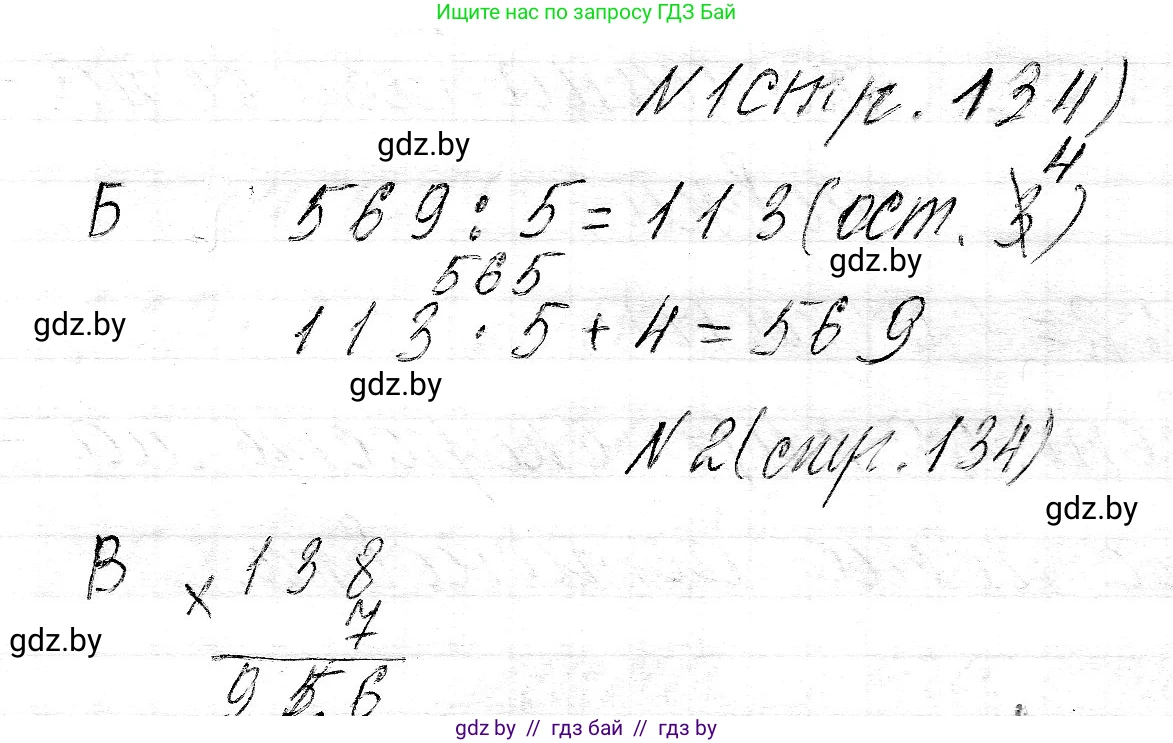 Ищите нас по запросу ГДЗ Бай
N 1 (стр. 134)
gdz.by
4
Б 569 : 5 = 113 (ост. 3)
gdz.by
565
gdz.by
113 · 5 + 4 = 569
gdz.by
N 2 (стр. 134)
gdz.by
В × 138
7
gdz.by
956
gdz.by // гдз бай // гдз by